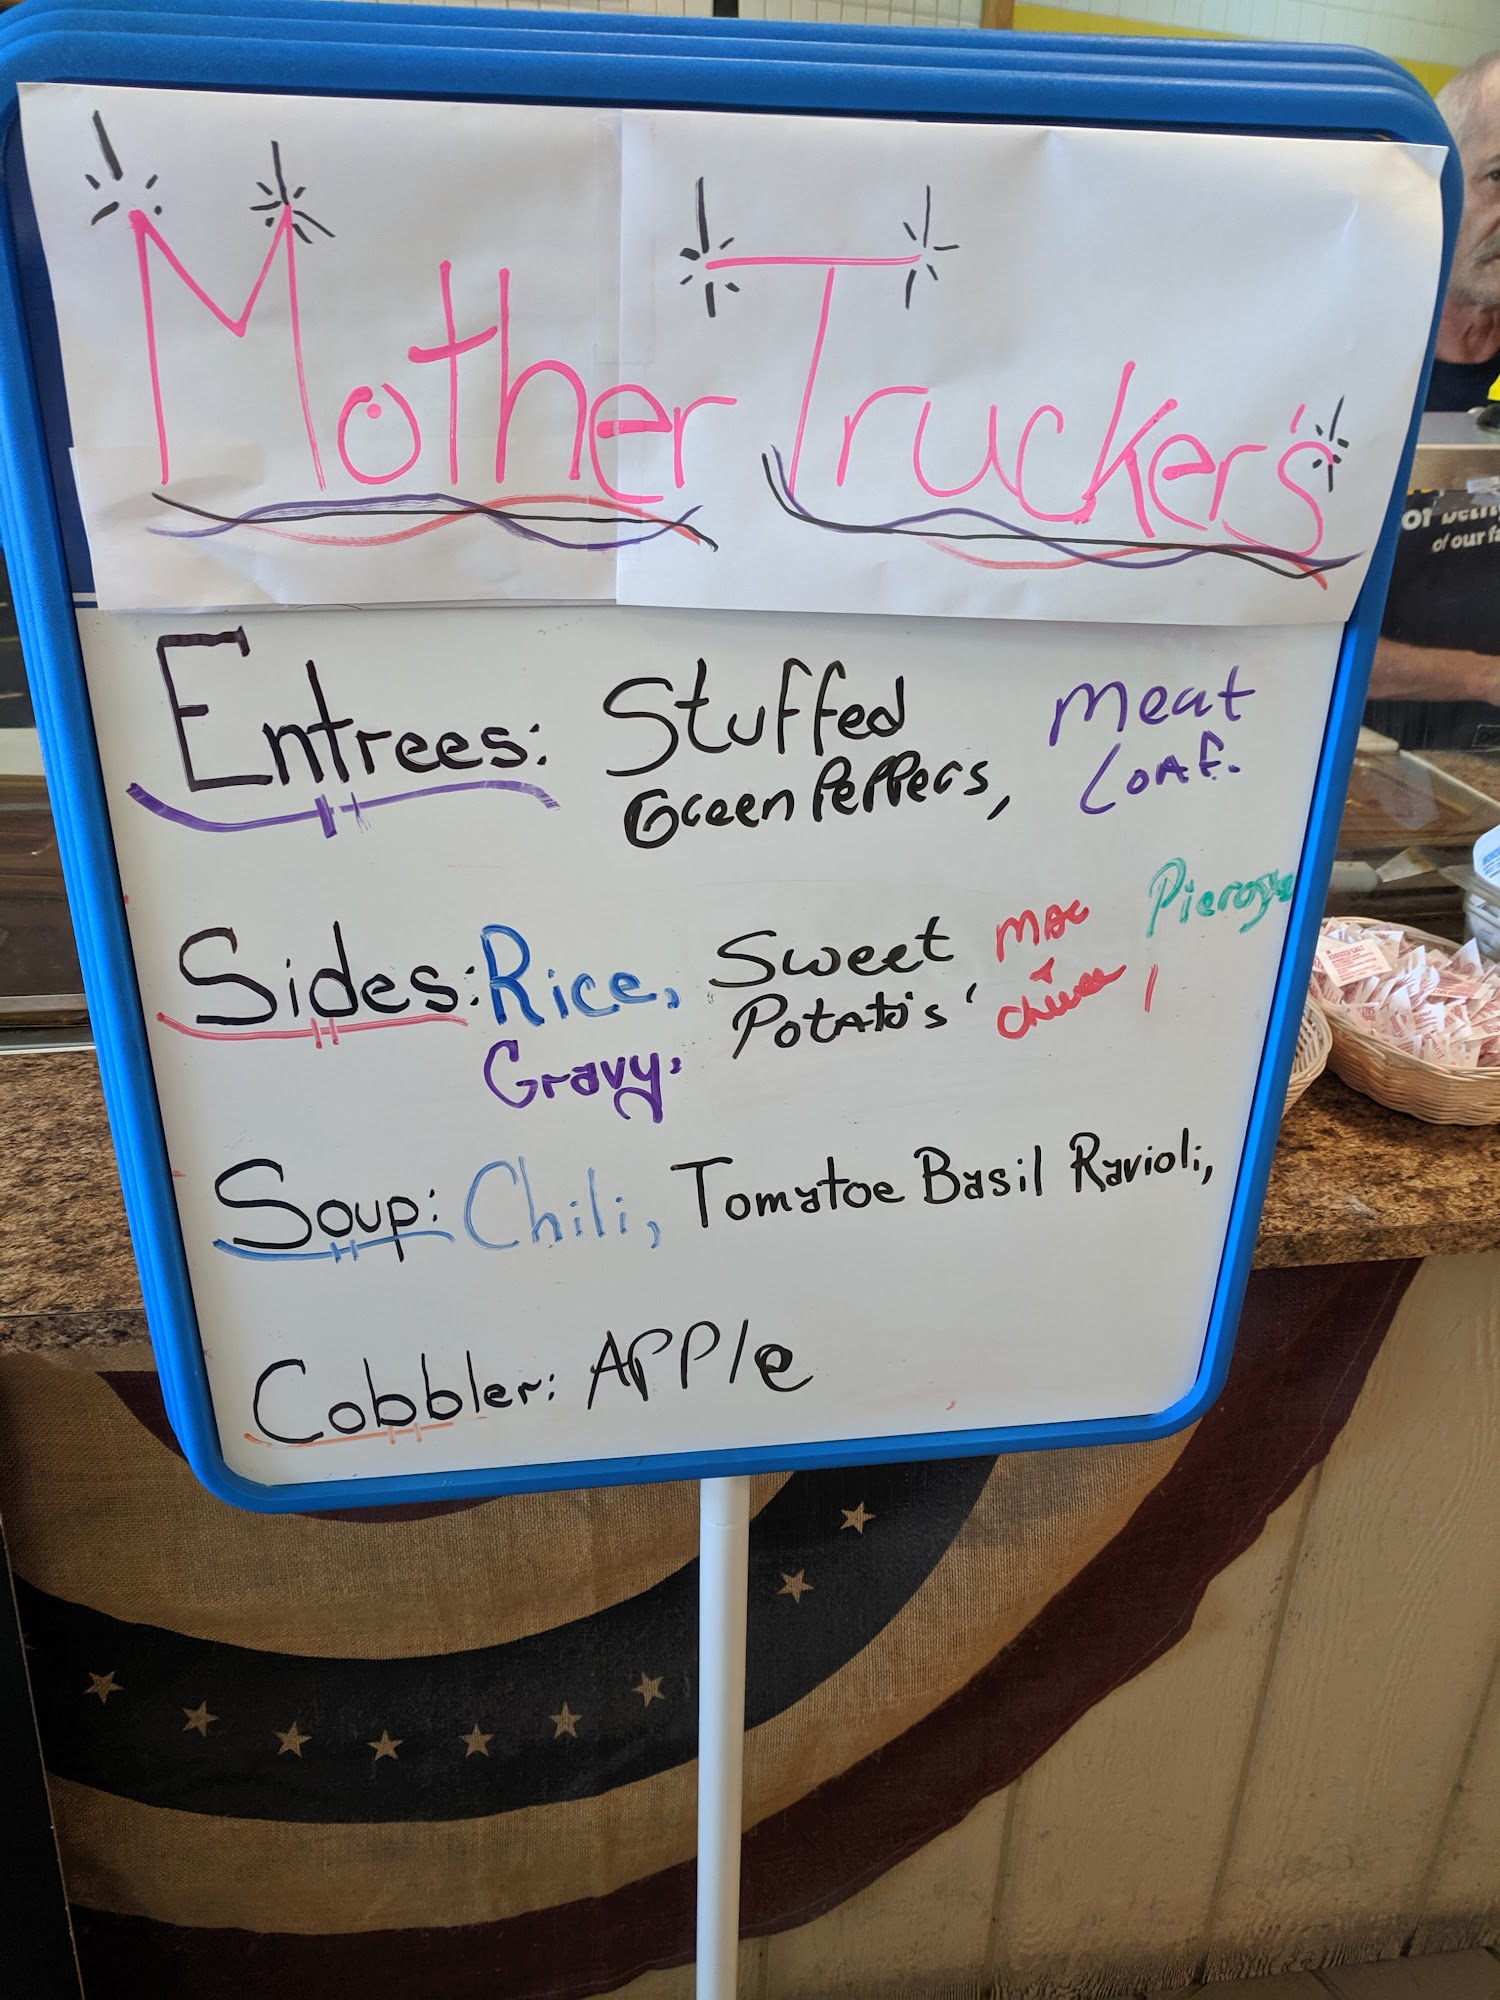 Mother Trucker's
Entrees: Stuffed Green Peppers, Meat Loaf.
Sides: Rice, Sweet Potato's, Mac + Cheese, Pierogys
Gravy,
Soup: Chili, Tomatoe Basil Ravioli,
Cobbler: Apple
of our